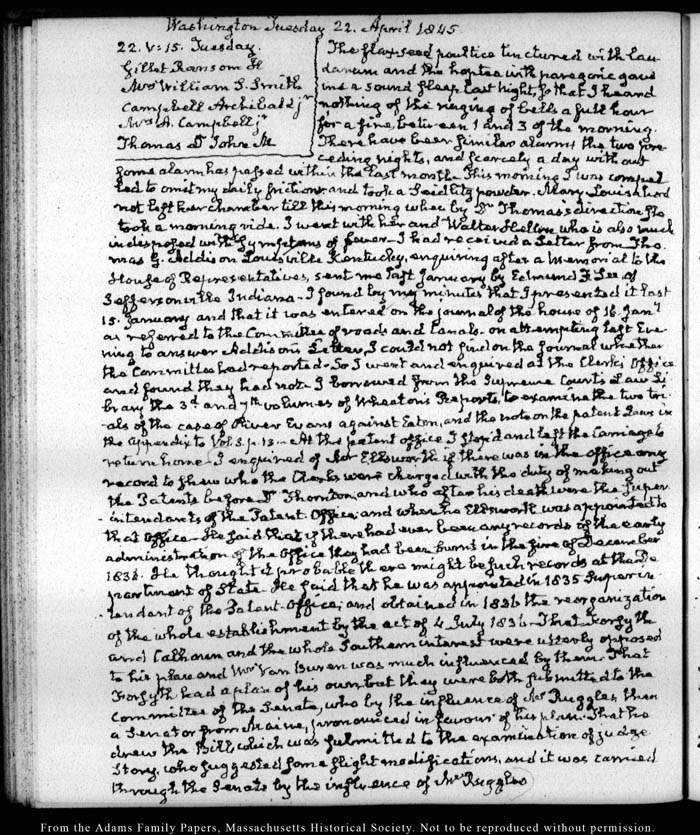 Washington Tuesday 22. April 1845
22. V:15. Tuesday.
Gillet Ransom H
Mrs William S. Smith
Campbell Archibald jr
Mrs A. Campbell jr
Thomas Dr John M
The flaxseed poultice tinctured with lau-
danum and the hop tea with paregoric gave
me a sound sleep last night, so that I heard
nothing of the ringing of bells a full hour
for a fire, between 1 and 3 of the morning.
There have been similar alarms the two pre-
ceding nights, and scarcely a day without
some alarm has passed within the last month. This morning I was compel-
led to omit my daily friction, and took a Seidlitz powder. Mary Louisa had
not left her chamber till this morning when by Dr Thomas's direction she
took a morning ride. I went with her and Walter Hellen who is also much
indisposed with symptoms of fever. I had received a Letter from Tho-
mas G. Addison Louisville Kentucky, enquiring after a Memorial to the
House of Representatives, sent me last January by Edmund F. Lee of
Jeffersonville Indiana. I found by my minutes that I presented it last
15. January and that it was entered on the journal of the house of 16. Jany
as referred to the Committee of roads and Canals. on attempting last Eve-
ning to answer Addison's Letter, I could not find on the Journal whether
the Committee had reported. So I went and enquired at the Clerk's Office
and found they had not. I borrowed from the Supreme Court's Law Li-
brary the 3d and 7th volumes of Wheaton's Reports, to examine the two tri-
als of the case of Oliver Evans against Eaton, and the note on the patent Laws in
the Appendix to Vol. 3. p. 13 — At the patent office I stop'd and left the Carriage to
return home. I enquired of Mr Ellsworth if there was in the office any
record to shew who the Clerks were charged with the duty of making out
the Patents before Dr Thornton, and who after his death were the Super-
intendants of the Patent Office, and when he Ellsworth was appointed to
that Office. He said that if there had ever been any records of the early
administration of the Office they had been burnt in the fire of December
1836. He thought it probable there might be such records at the De-
partment of State. He said that he was appointed in 1835 Superin-
tendant of the Patent Office, and obtained in 1836 the reorganization
of the whole establishment by the act of 4 July 1836. That Forsyth
and Calhoun and the whole Southern interest were utterly opposed
to his plan and Mr Van Buren was much influenced by them. That
Forsyth had a plan of his own but they were both submitted to the
Committee of the Senate, who by the influence of Mr Ruggles, then
a Senator from Maine, pronounced in favour of his plan. That he
drew the Bill, which was submitted to the examination of Judge
Story, who suggested some slight modifications, and it was carried
through the Senate by the influence of Mr Ruggles
From the Adams Family Papers, Massachusetts Historical Society. Not to be reproduced without permission.